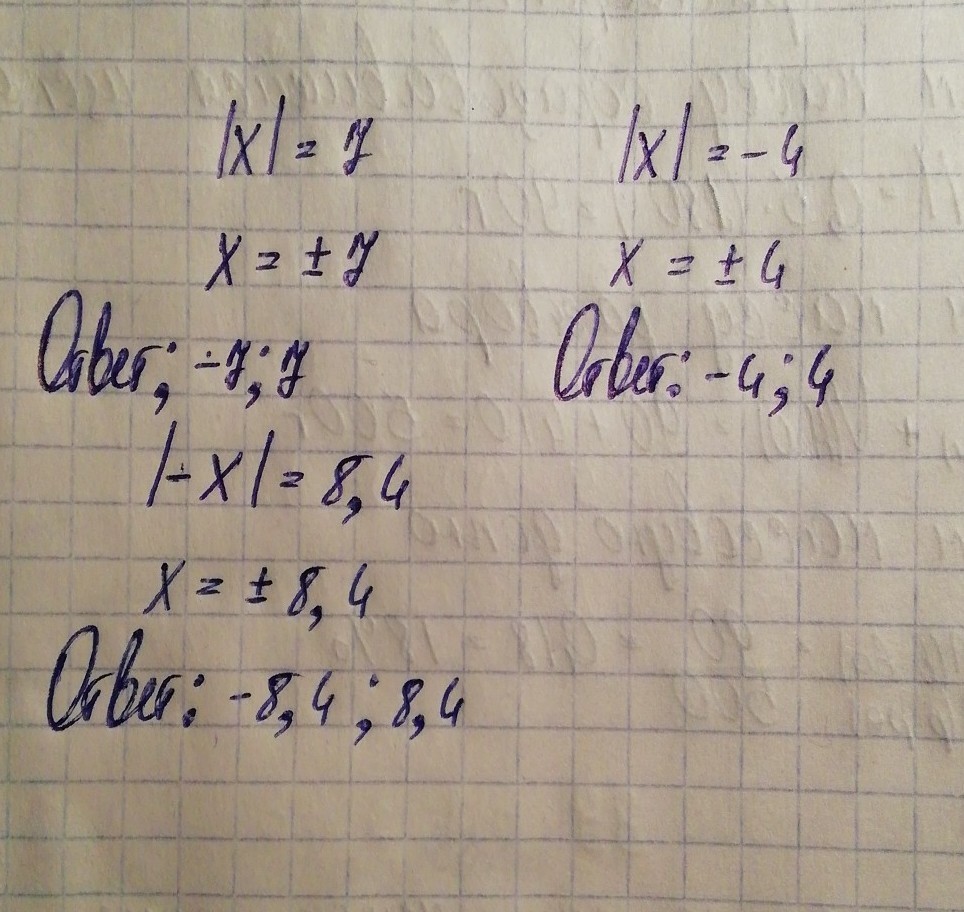 |x| = 7
x = ± 7
Ответ: -7; 7
|x| = -4
x = ± 4
Ответ: -4; 4
|-x| = 8,4
x = ± 8,4
Ответ: -8,4; 8,4